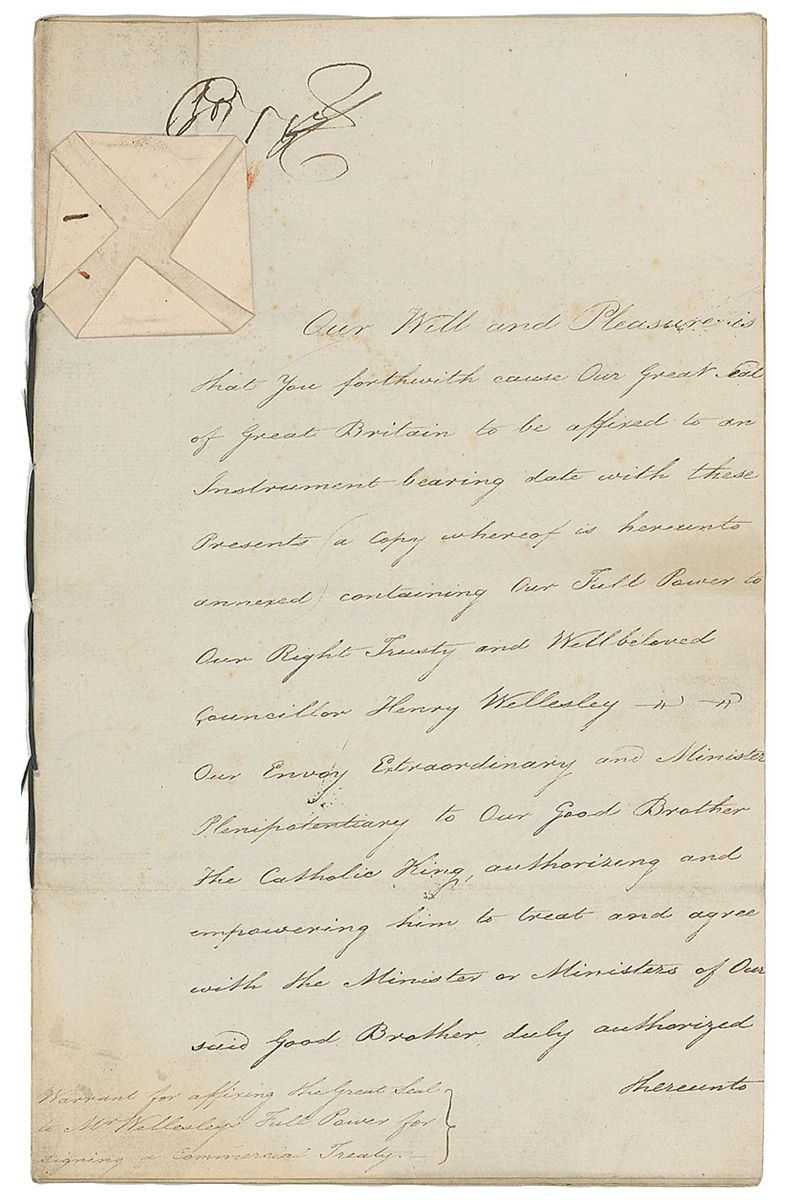 Our Will and Pleasure is
that You forthwith cause Our Great Seal
of Great Britain to be affixed to an
Instrument bearing date with these
Presents (a Copy whereof is hereunto
annexed) containing Our Full Power to
Our Right Trusty and Wellbeloved
Councillor Henry Wellesley
Our Envoy Extraordinary and Minister
Plenipotentiary to Our Good Brother
the Catholic King, authorizing and
empowering him to treat and agree
with the Minister or Ministers of Our
said Good Brother, duly authorized
thereunto
Warrant for affixing the Great Seal
to Mr Wellesley's Full Power for
signing a Commercial Treaty.